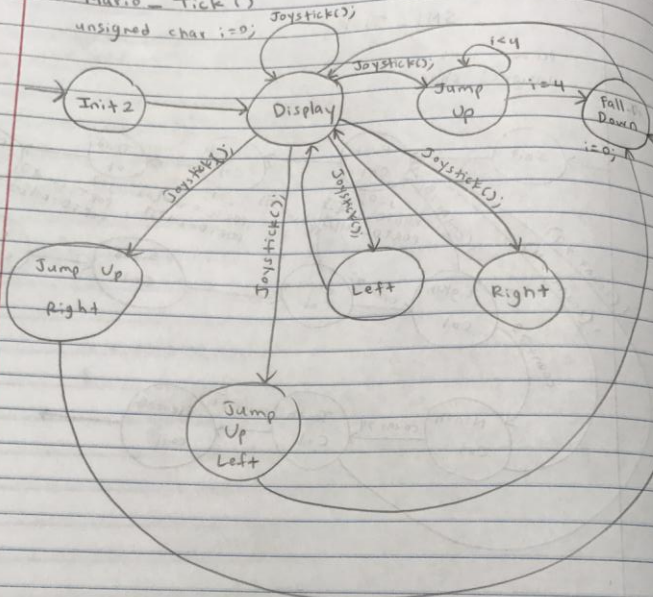 Mario_Tick()
unsigned char i=0;
Joystick();
i<4
Joystick();
Init2
Display
Jump
Up
i=4
Fall
Down
i=0;
Joystick();
Joystick();
Joystick();
Joystick();
Jump Up
Right
Left
Right
Jump
Up
Left